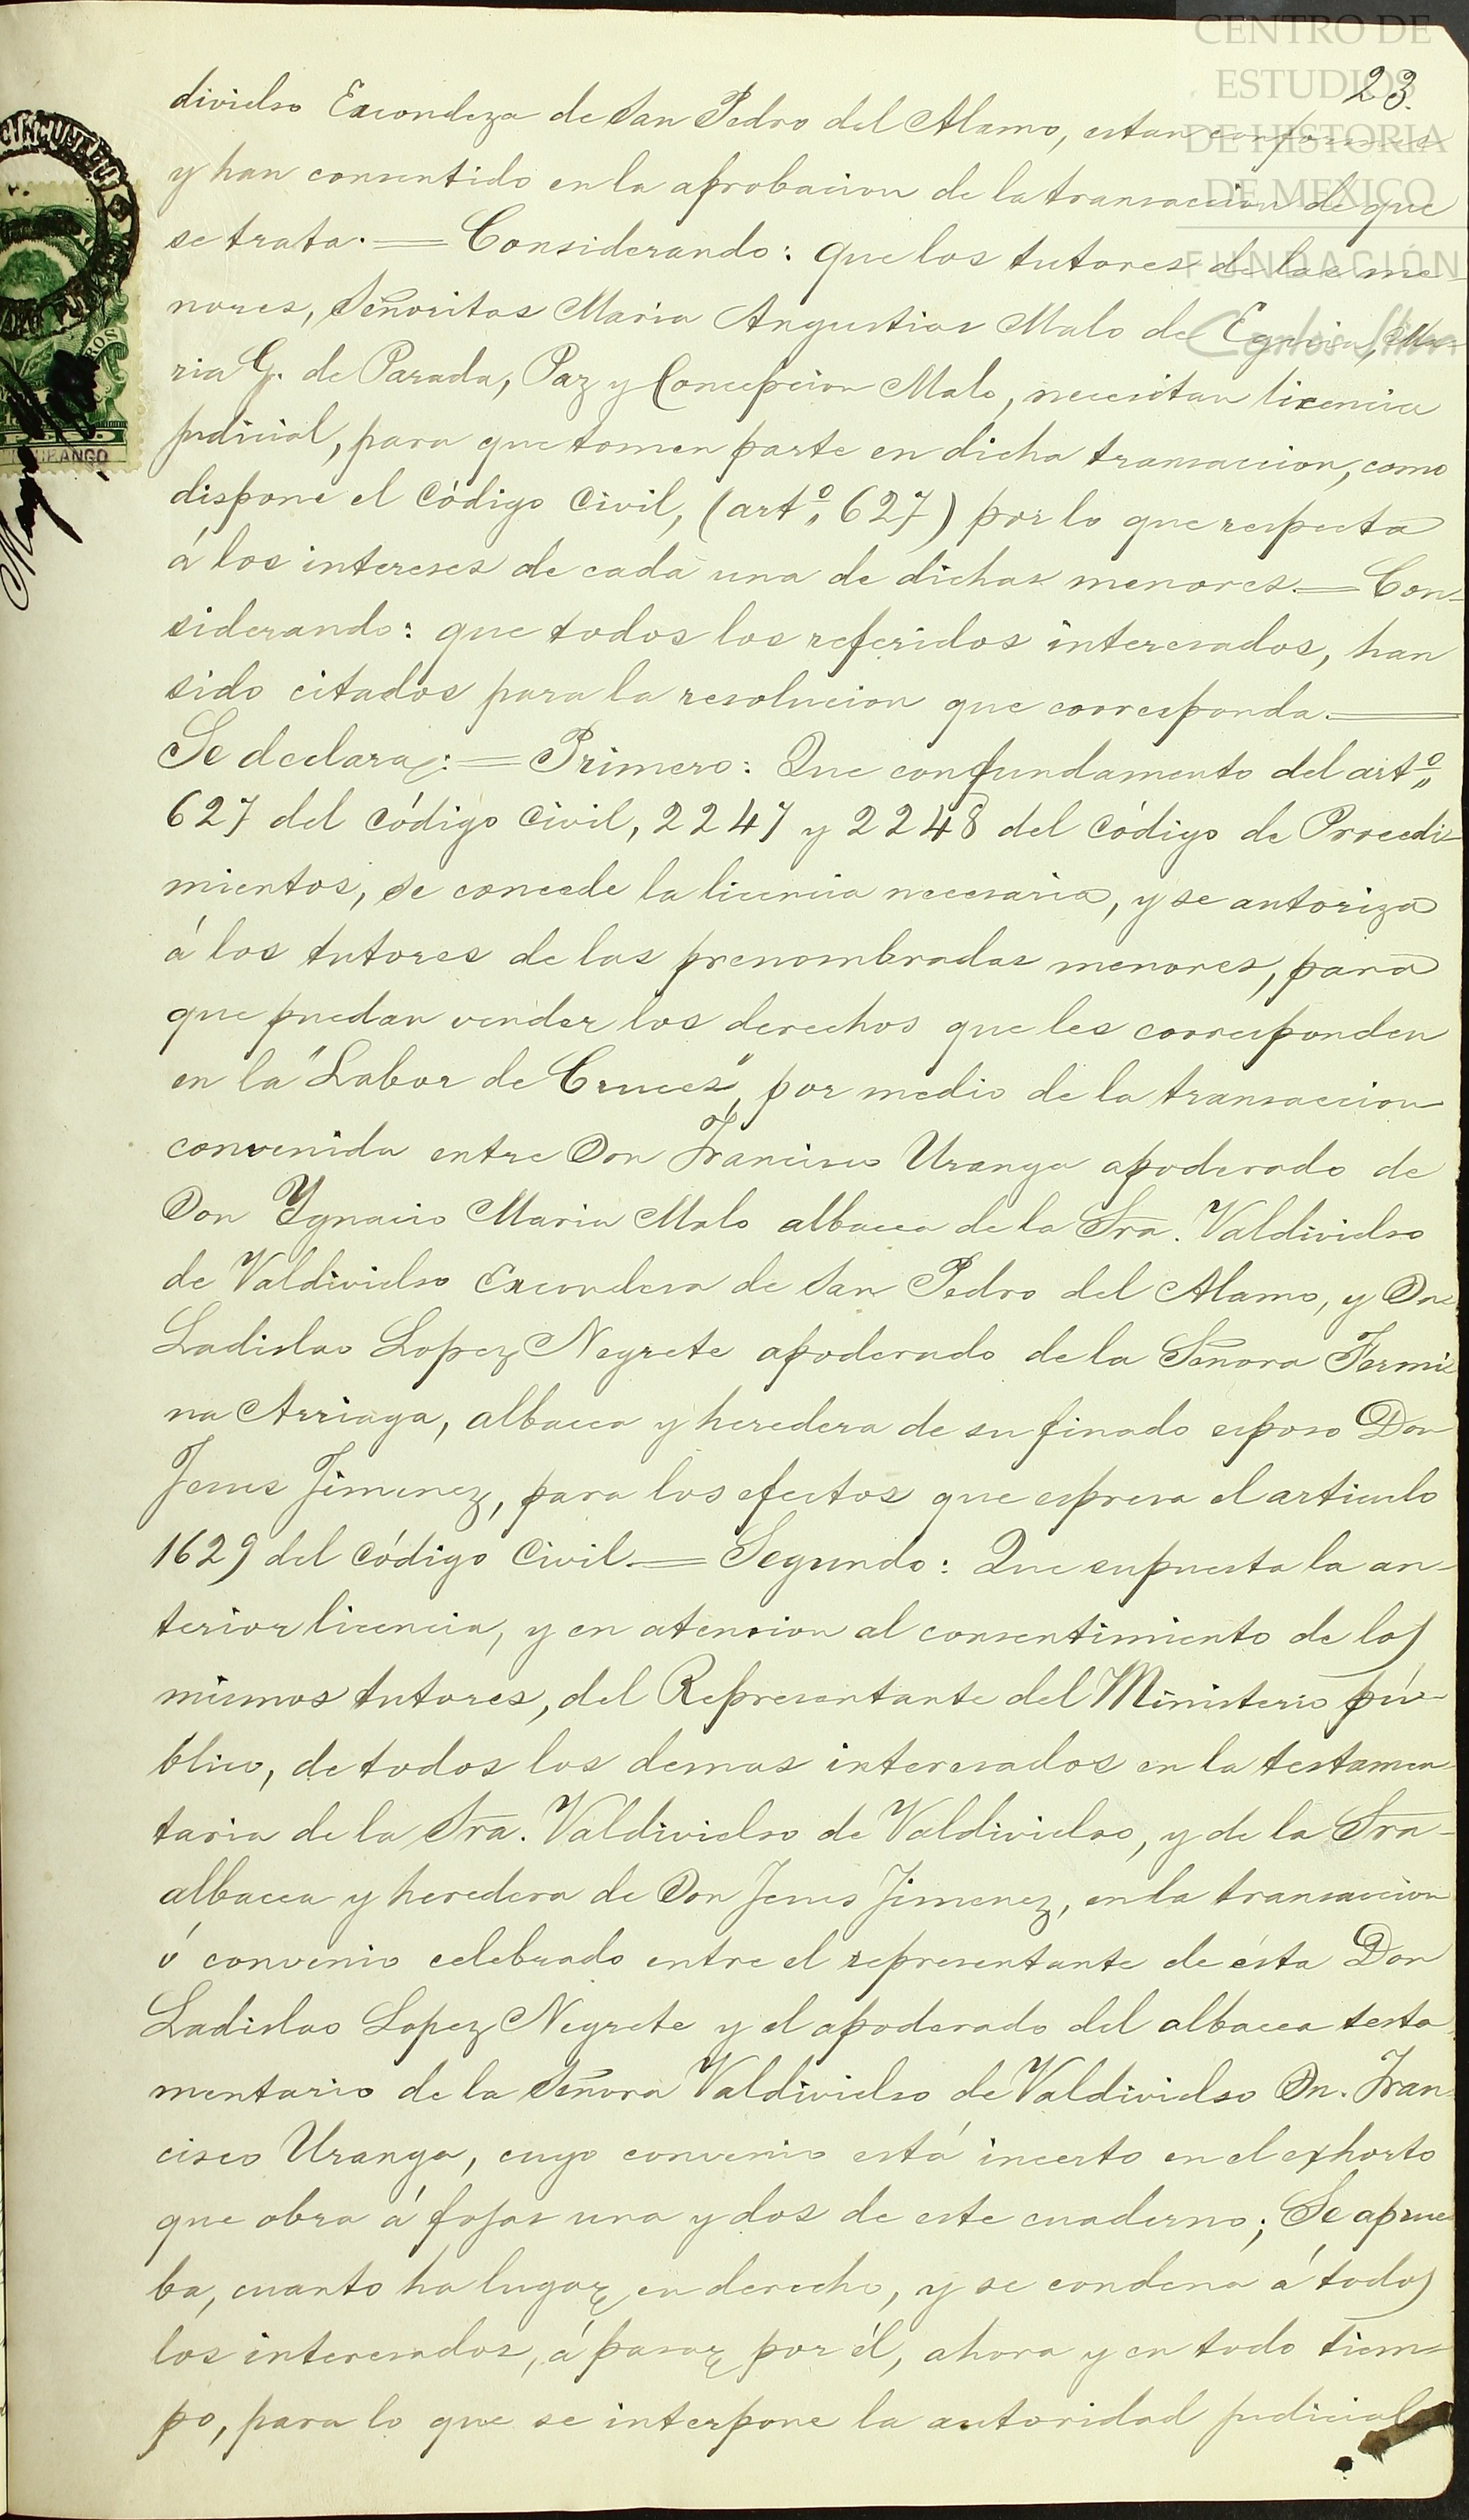 CENTRO DE
ESTUDIOS
DE HISTORIA
DE MEXICO
FUNDACIÓN
Carlos Slim
23.
divielso Excondeza de San Pedro del Alamo, estan conformes
y han consentido en la aprobacion de la transaccion de que
se trata. = Considerando: que los tutores de las me-
nores, Señoritas Maria Angustias Malo de Eguia, Ma-
ria G. de Parada, Paz y Concepcion Malo, necesitan licencia
judicial, para que tomen parte en dicha transaccion, como
dispone el Código Civil, (artº 627) por lo que respecta
á los intereses de cada una de dichas menores. = Con-
siderando: que todos los referidos interesados, han
sido citados para la resolucion que corresponda. =
Se declara: = Primero: Que con fundamento del artº
627 del Código Civil, 2247 y 2248 del Código de Procedi-
mientos, se concede la licencia necesaria, y se autoriza
á los tutores de las prenombradas menores, para
que puedan vender los derechos que les corresponden
en la "Labor de Cruces", por medio de la transaccion
convenida entre Don Francisco Uranga apoderado de
Don Ygnacio Maria Malo albacea de la Sra. Valdivielso
de Valdivielso Excondesa de San Pedro del Alamo, y Dn
Ladislao Lopez Negrete apoderado de la Señora Fermi
na Arriaga, albacea y heredera de su finado esposo Don
Jesus Jimenez, para los efectos que espresa el articulo
1629 del Código Civil. = Segundo: Que supuesta la an-
terior licencia, y en atension al consentimiento de los
mismos tutores, del Representante del Ministerio pú-
blico, de todos los demas interesados en la testamen-
taria de la Sra. Valdivielso de Valdivielso, y de la Sra
albacea y heredera de Don Jesus Jimenez, en la transaccion
ó convenio celebrado entre el representante de ésta Don
Ladislao Lopez Negrete y el apoderado del albacea testa
mentario de la Señora Valdivielso de Valdivielso Dn. Fran
cisco Uranga, cuyo convenio está incerto en el exhorto
que obra á fojas una y dos de este cuaderno; Se aprue
ba, cuanto ha lugar en derecho, y se condena á todos
los interesados, á pasar por él, ahora y en todo tiem-
po, para lo que se interpone la autoridad judicial